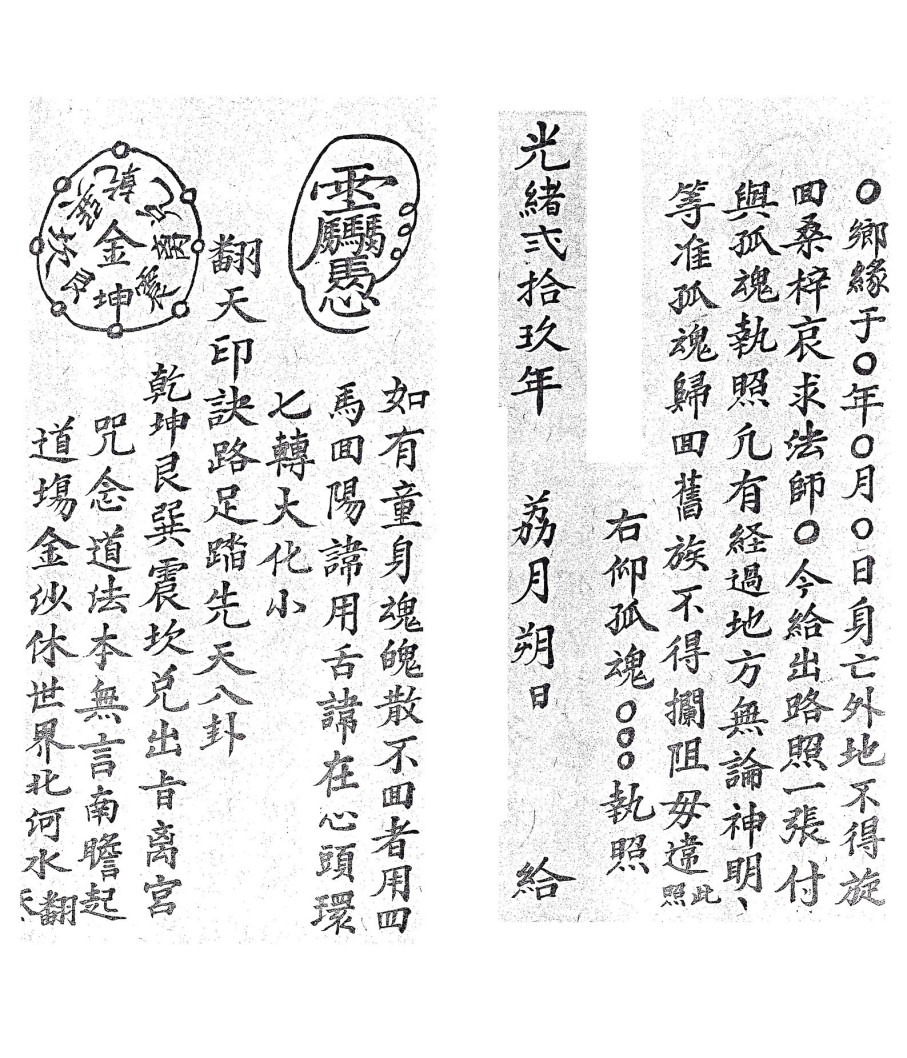 〇鄉緣于〇年〇月〇日身亡外地不得旋
回桑梓哀求法師〇今給出路照一張付
與孤魂執照凢有経過地方無論神明、
等准孤魂歸回舊族不得攔阻毋違此照
右仰孤魂〇〇〇執照
光緒弍拾玖年 荔月朔日 給
如有童身魂魄散不回者用四
馬回陽諱用舌諱在心頭環
七轉大化小
翻天印訣路足踏先天八卦
乾坤艮巽震坎兑出旨离宮
咒念道法本無言南瞻起
道塲金沙休世界北河水翻
金
坤